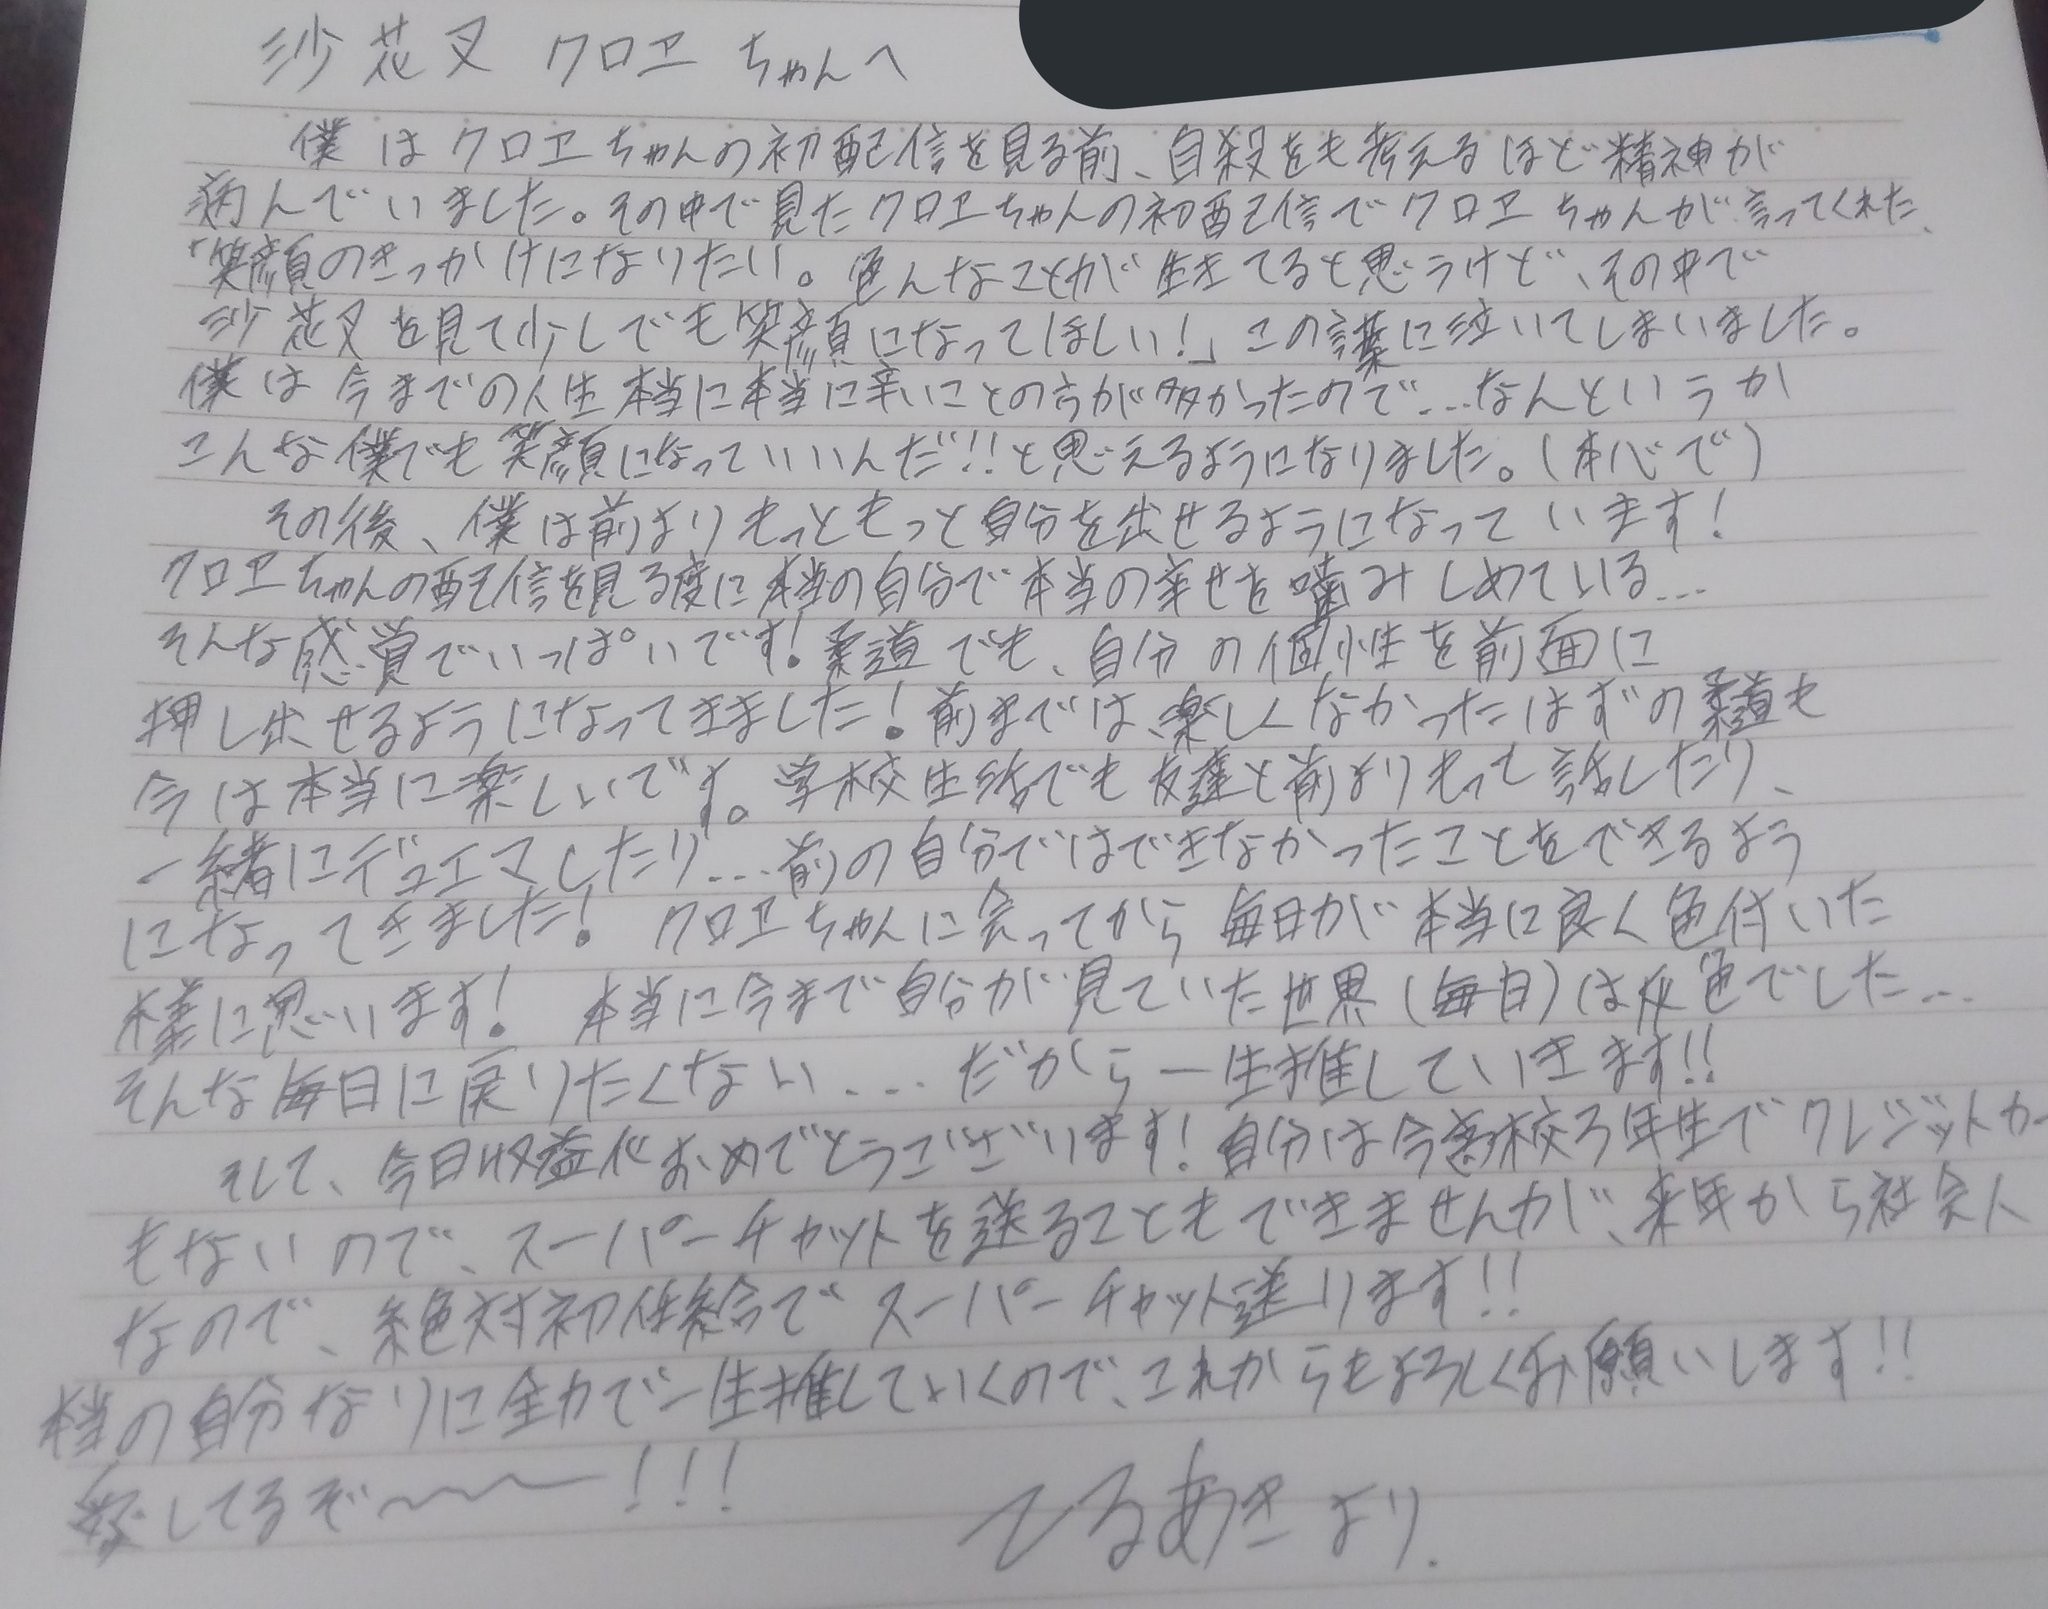 沙花叉 クロヱ ちゃんへ
僕はクロヱちゃんの初配信を見る前、自殺をも考えるほど精神が
病んでいました。その中で見たクロヱちゃんの初配信でクロヱちゃんが言ってくれた、
「笑顔のきっかけになりたい。色んなことが生きてると思うけど、その中で
沙花叉を見て少しでも笑顔になってほしい!」この言葉に泣いてしまいました。
僕は今までの人生本当に本当に辛いことの方が多かったので…なんというか
こんな僕でも笑顔になっていいんだ!!と思えるようになりました。(本心で)
その後、僕は前よりもっともっと自分を出せるようになっています!
クロヱちゃんの配信を見る度に本当の自分で本当の幸せを噛みしめている…
そんな感覚でいっぱいです!柔道でも、自分の個性を前面に
押し出せるようになってきました!前までは楽しくなかったはずの柔道も
今は本当に楽しいです。学校生活でも友達と前よりもっと話したり、
一緒にデュエマしたり…前の自分ではできなかったことをできるよう
になってきました!クロヱちゃんに会ってから毎日が本当に良く色付いた
様に思います!本当に今まで自分が見ていた世界(毎日)は灰色でした…
そんな毎日に戻りたくない…だから一生推していきます!!
そして、今日収益化おめでとうございます!自分は今高校3年生でクレジットカー
もないので、スーパーチャットを送ることもできませんが、来年から社会人
なので、絶対初任給でスーパーチャット送ります!!
本当の自分なりに全力で一生推していくので、これからもよろしくお願いします!!
愛してるぞ〜〜〜!!!
てるあきより.